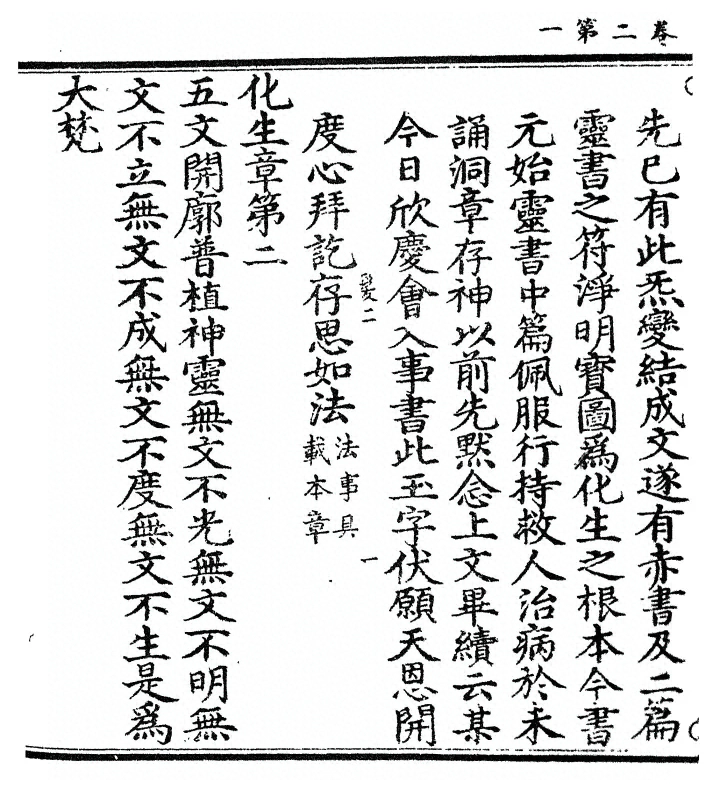 卷二第一
先已有此炁變結成文遂有赤書及二篇
靈書之符淨明寶圖爲化生之根本今書
元始靈書中篇佩服行持救人治病於未
誦洞章存神以前先默念上文畢續云某
今日欣慶會入事書此玉字伏願天恩開
度心拜訖存思如法法事具載本章
髮二
一
化生章第二
五文開廓普植神靈無文不光無文不明無
文不立無文不成無文不度無文不生是爲
大梵